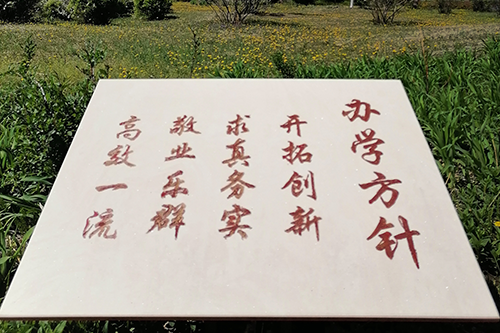 办学方针
开拓创新
求真务实
敬业乐群
高效一流